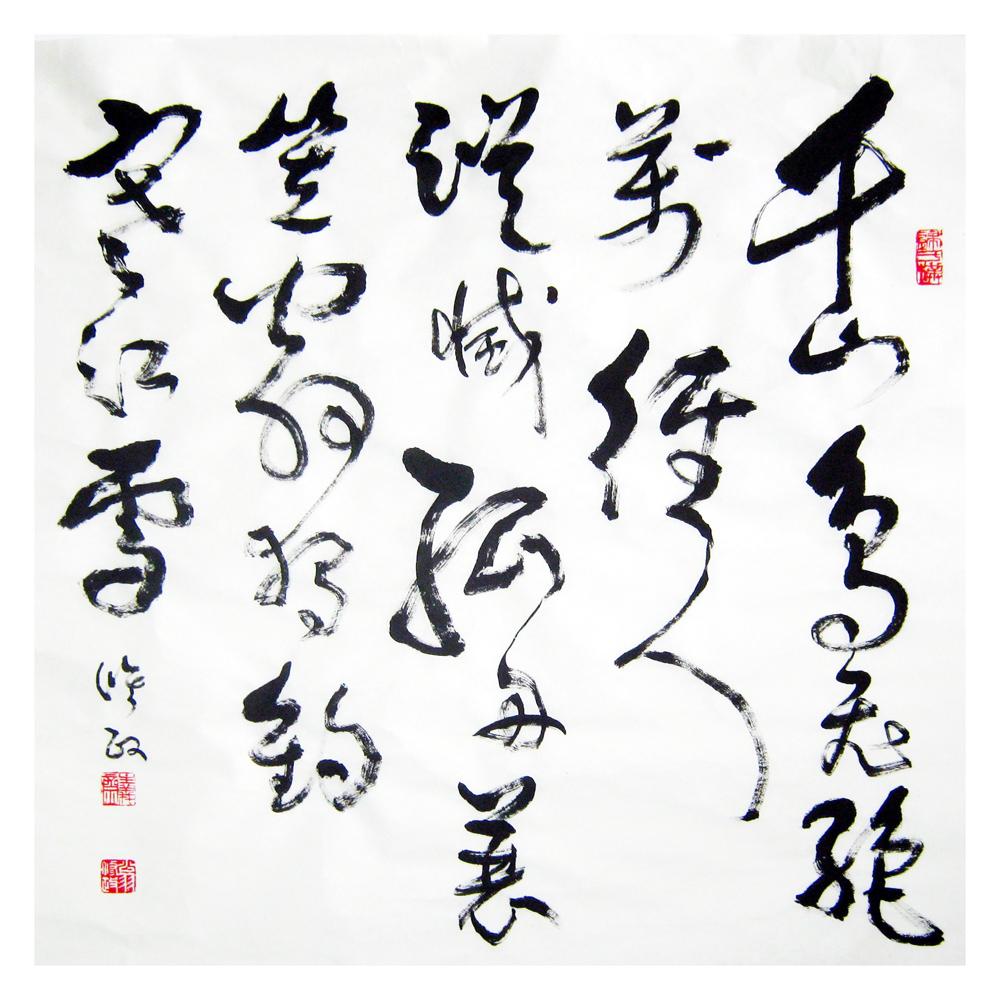 千山鳥飛絕
萬徑人
蹤滅孤舟蓑
笠翁獨釣
寒江雪
修政